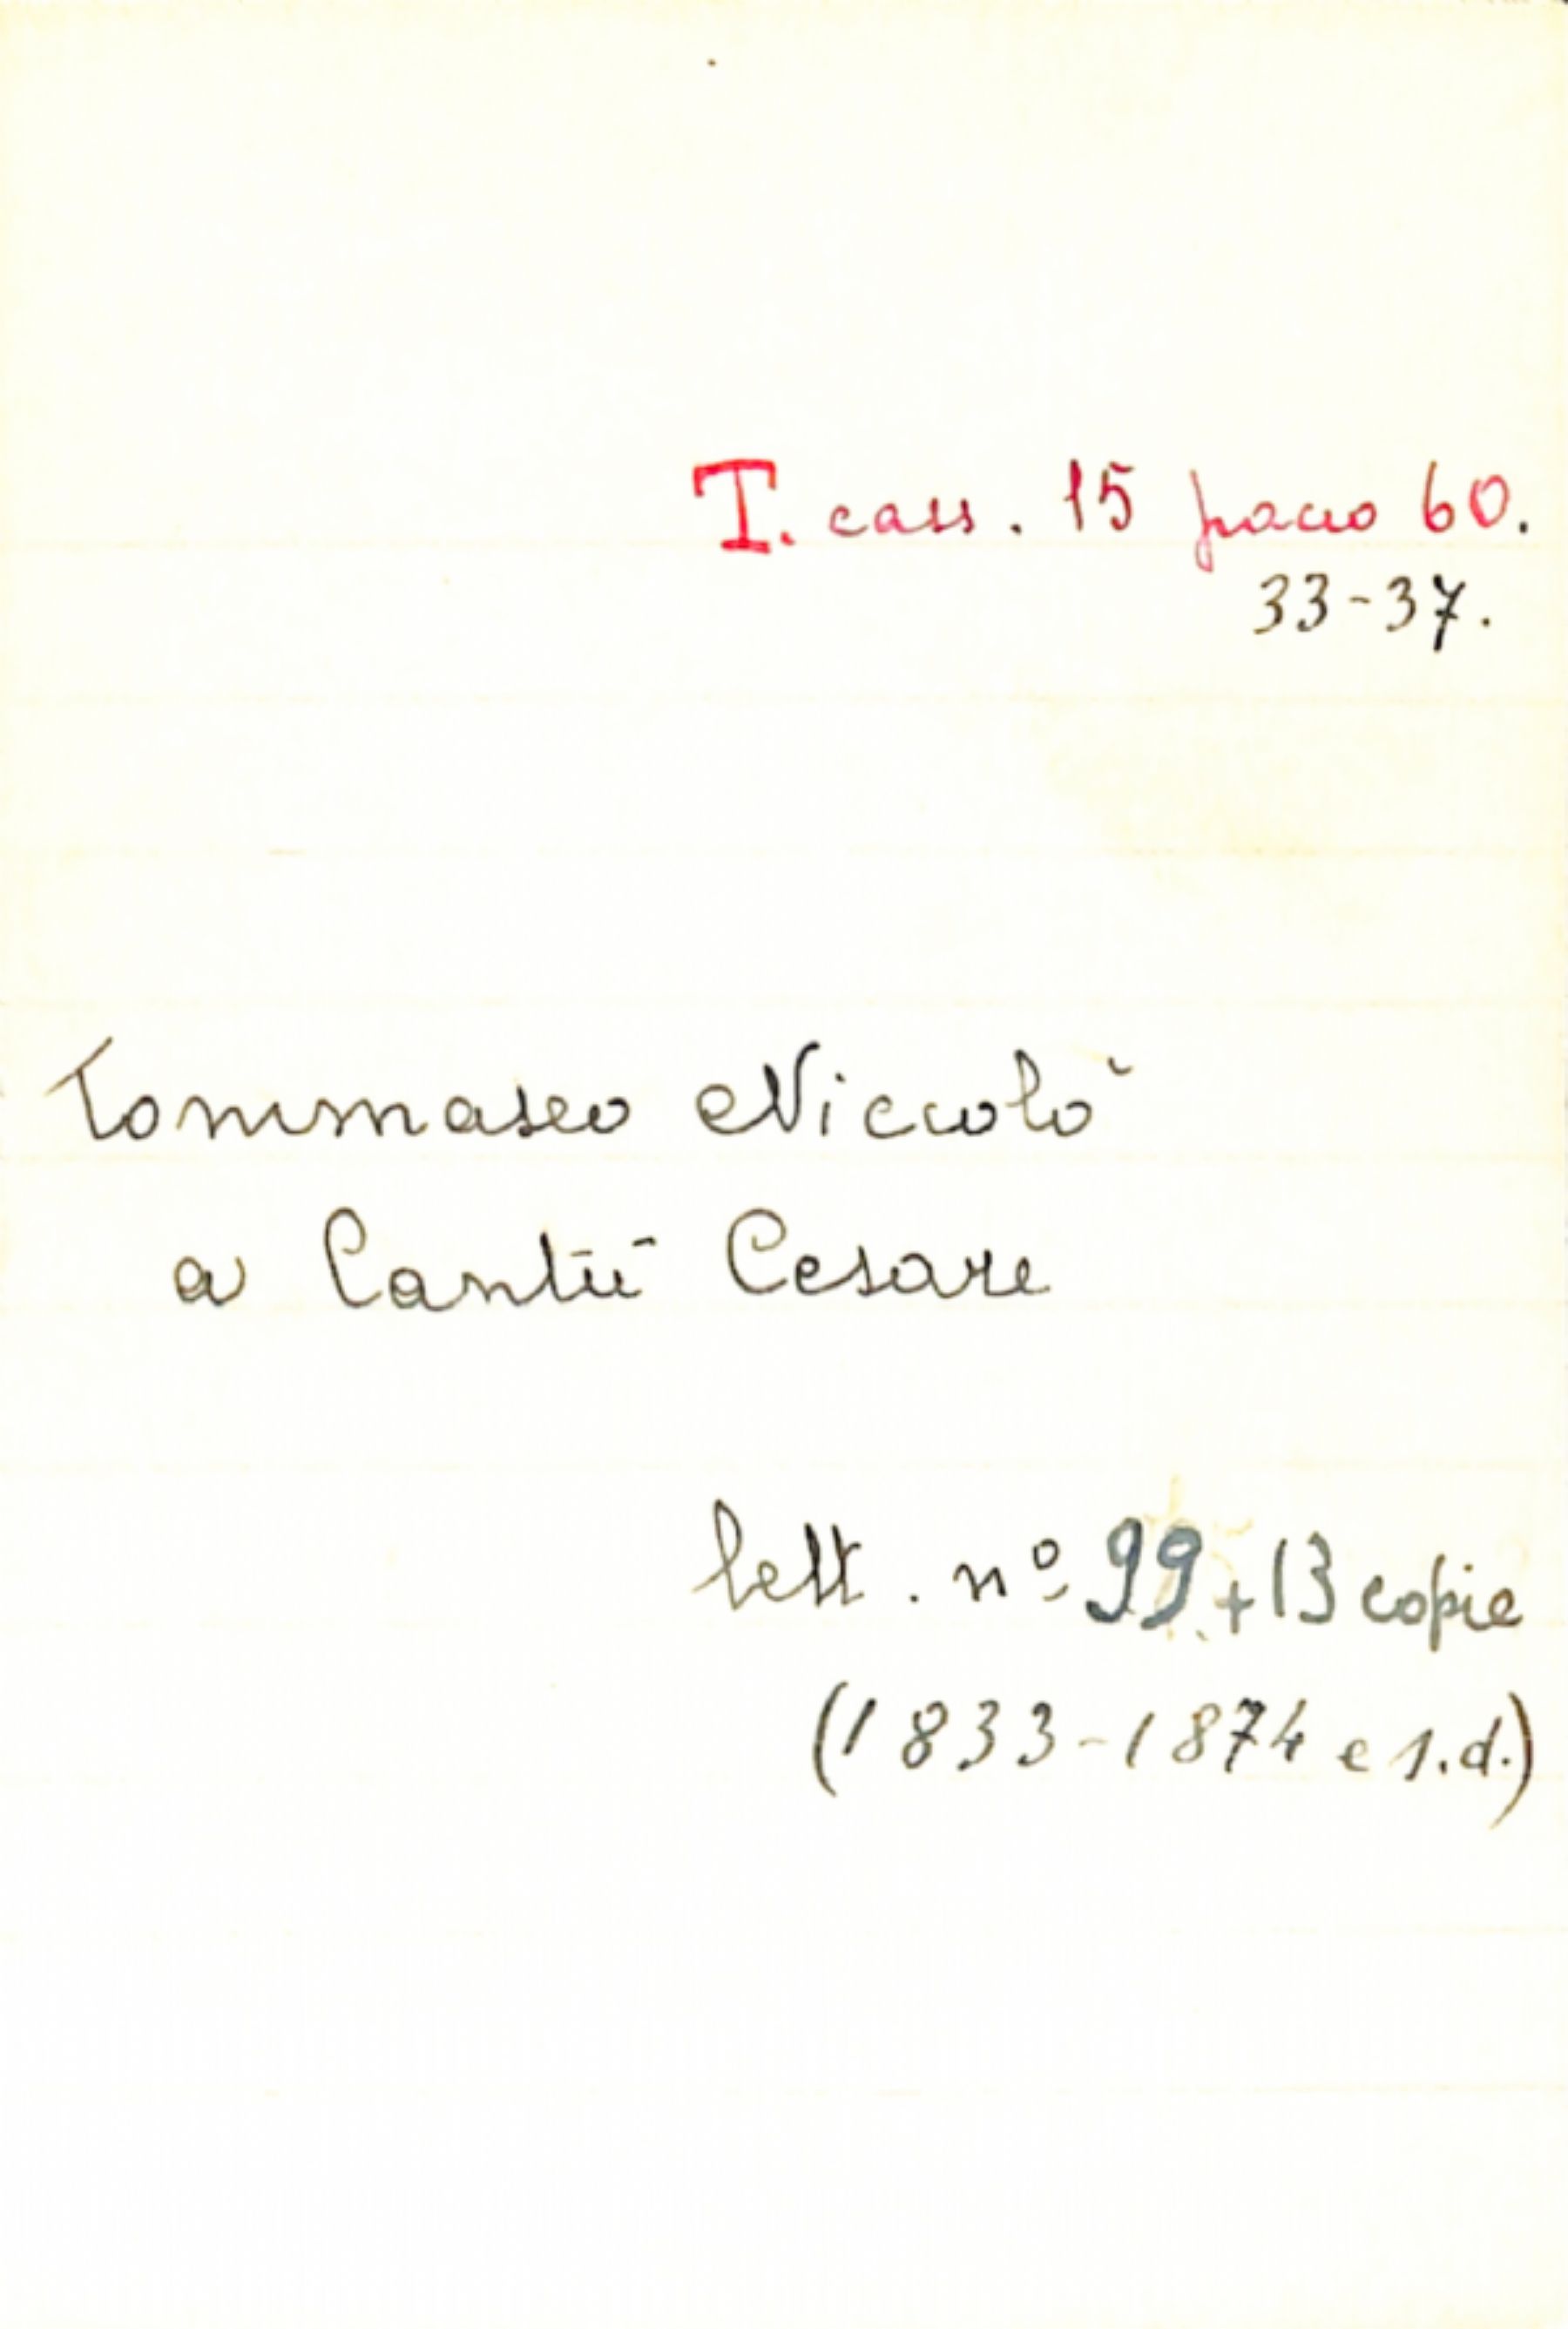 T. cass. 15 pacco 60.
33-37.
Tommaseo Niccolò
a Cantù Cesare
lett. nº 99 + 13 copie
(1833-1874 e s.d.)